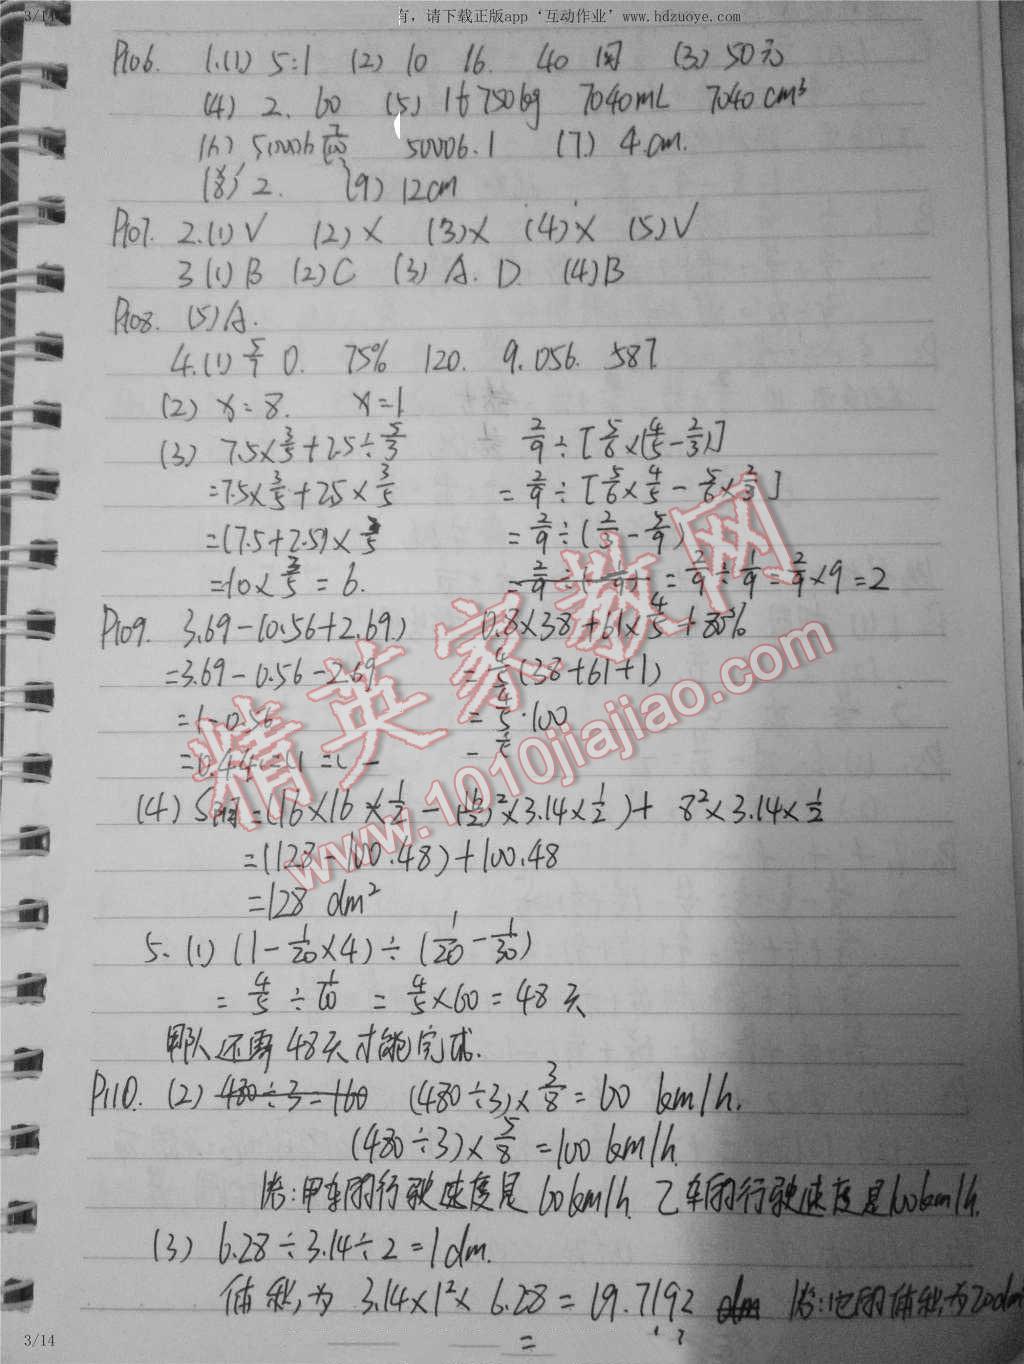 3/14 有，请下载正版app‘互动作业’www.hdzuoye.com
P106. 1.(1) 5:1 (2) 10 16. 40 (3) 50元
(4) 2. 60 (5) 1t 750kg 7040mL 7040cm³
50006.1 (7) 4cm.
(8) 2. (9) 12cm
P107. 2.(1)√ (2)× (3)× (4)× (5)√
3(1)B (2)C (3)A. D (4)B
P108. (5)A.
4.(1) 5/7 0. 75% 120. 9.056. 587
(2) x=8. x=1
(3) 7.5×3/5+2.5÷5/3 2/9÷[5/6×(4/5-2/3)]
=7.5×3/5+2.5×3/5 =2/9÷[5/6×4/5-5/6×2/3]
=(7.5+2.5)×3/5 =2/9÷(2/3-5/9)
=10×3/5=6. =2/9÷(1/9)=2/9÷1/9=2/9×9=2
P109. 3.69-(0.56+2.69) 0.8×38+61×4/5+80%
=3.69-0.56-2.69 =4/5(38+61+1)
=1-0.56 =4/5·100
=0.44
(4) S阴=(16×16×1/2-(16/2)²×3.14×1/2)+8²×3.14×1/2
=(128-100.48)+100.48
=128 dm²
5.(1) (1-1/20×4)÷(1/20-1/30)
=4/5÷1/60=4/5×60=48天
甲队还需48天才能完成.
P110. (2) 480÷3=160 (480÷3)×3/8=60 km/h.
(480÷3)×5/8=100km/h.
答:甲车的行驶速度是60km/h. 乙车的行驶速度是100km/h.
(3) 6.28÷3.14÷2=1dm.
体积为 3.14×1²×6.28=19.7192 dm 答:它的体积为20dm
=
精英家教网
www.1010jiajiao.com
3/14